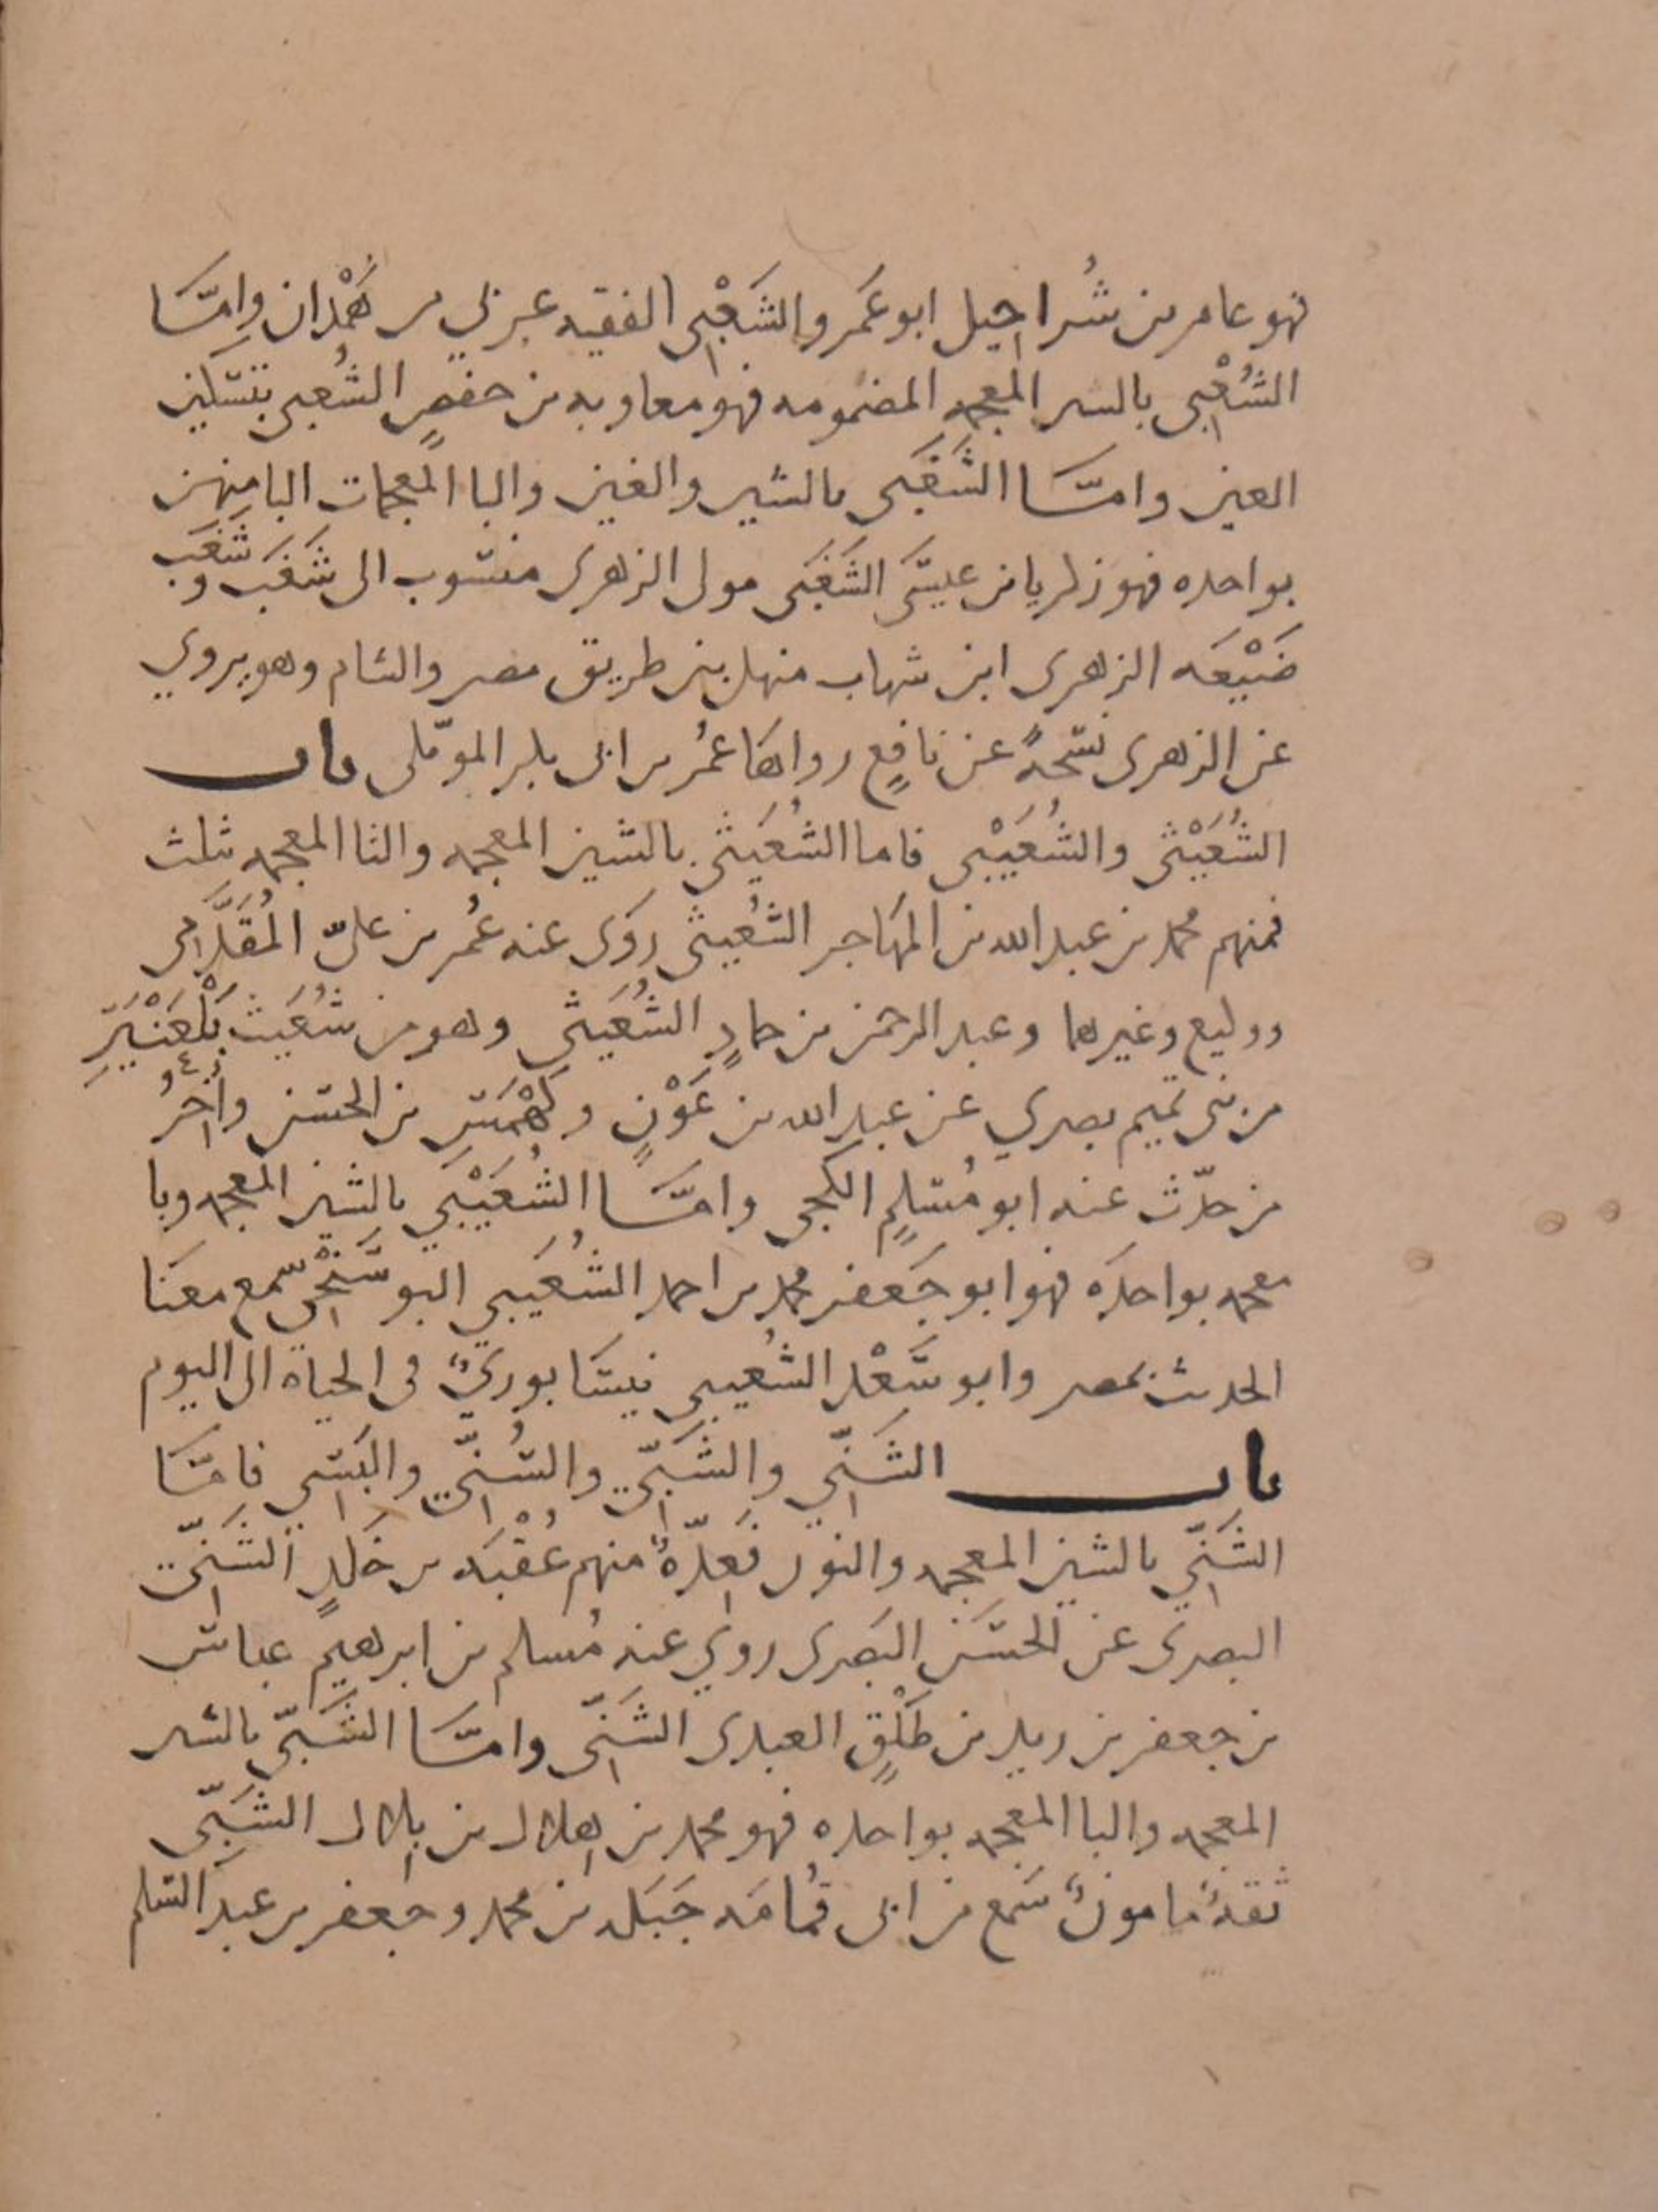 فهو عامر بن شُراحيل ابو عَمرو الشَعْبِى الفقيه عربي من هَمْدان وامَّا
الشُعْبِى بالشين المعجمه المضمومه فهو معاويه بن حفصٍ الشُعبى بتسكين
العين وامَّا الشَغَبى بالشين والغين والبا المعجمات البا منهن
بواحده فهو زكريا بن عيسَى الشَغَبى مولى الزهرى منسوب الى شَغَب وشَغَب
ضَيْعَه الزهرى ابن شهاب منهل بين طريق مصر والشام وهو يروي
عن الزهرى نسَخةً عن نافعٍ رواها عمُر بن ابى بكر الموّملى باب
الشُعَيْثى والشُعَيْبى فاما الشُعَيثى بالشين المعجمه والثا المعجمه بثلث
فمنهم محمد بن عبد الله بن المهَاجر الشُعيثى روَى عنه عُمر بن علىّ المُقَدَّمى
ووكيع وغيرهما وعبد الرحمن بن حمادٍ الشُعَيثى وهو من شُعَيث بَلْعَنْبَرِ
من بنى تميم بصري عن عبد الله بن عَوْنٍ وكَهْمَسِ بن الحسَن وآخِرُ
من حدّث عنه ابو مُسلمٍ الكجى وامَّا الشُعَيْبي بالشين المعجمه وبا
معجمه بواحدَه فهو ابو جَعفر محمد بن احمد الشُعَيبي البوسَنْجى سمع معَنَا
الحديث بمصر وابو سَعْد الشُعيبى نيسَابوريٌّ فى الحياه الى اليوم
باب الشَنِّي والشَبِّي والسُنِّي والبَستِي فامَّا
الشَنِّي بالشين المعجمه والنون فَعِدّةٌ منهم عُقْبَه بن خَلدٍ الشَنِّي
البصرى عن الحسَن البَصرى روي عنه مُسلم بن ابرهيم عباس
بن جعفر بن زيد بن طَلْقٍ العبدى الشَنِّى وامَّا الشَبِّى بالشين
المعجمه والبا المعجمه بواحده فهو محمد بن هلال بن بلال الشَبِّى
ثقةٌ مامونٌ سَمع من ابى قُمامَه جَبَله بن محمد وجعفر بن عبد السَلم